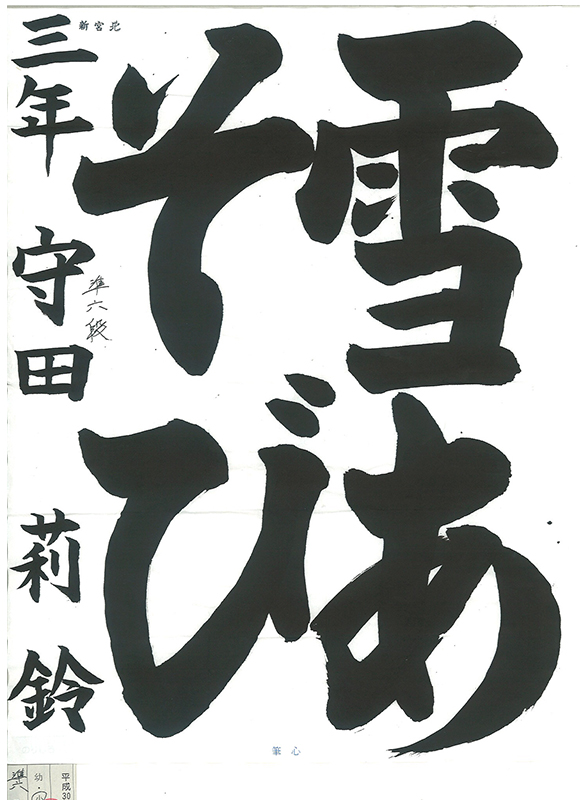 雪あ
そび
三年 守田 莉鈴
準六段
新宮北
心筆
平成30
幼・小
準六